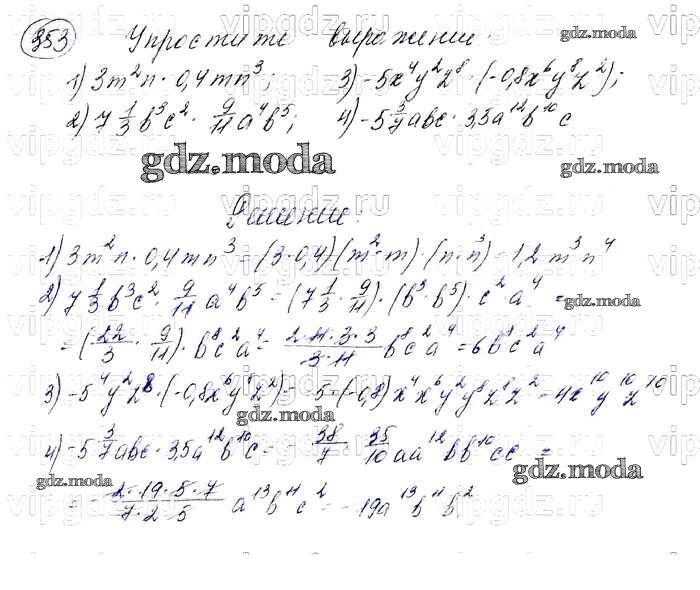 853 Упростите выражение.
1) 3m²n · 0,4mn³; 3) -5x⁴y²z⁸ · (-0,8x⁶y⁸z²);
2) 7 1/3 b³c² · 9/11 a⁴b⁵; 4) -5 3/7 abc · 3,5a¹²b¹⁰c
gdz.moda
gdz.moda
Решение:
1) 3m²n · 0,4mn³ = (3·0,4)(m²·m)·(n·n³) = 1,2m³n⁴
2) 7 1/3 b³c² · 9/11 a⁴b⁵ = (7 1/3 · 9/11)·(b³·b⁵)·c²a⁴ =
gdz.moda
= (22/3 · 9/11)·b⁸c²a⁴ = 2·11·3·3/3·11 b⁸c²a⁴ = 6b⁸c²a⁴
3) -5⁴y²z⁸·(-0,8x⁶y⁸z²) = -5·(-0,8)x⁴x⁶y²y⁸z⁸z² = 4x¹⁰y¹⁰z¹⁰
gdz.moda
4) -5 3/7 abc · 3,5a¹²b¹⁰c = - 38/7 · 35/10 aa¹²bb¹⁰cc =
gdz.moda
gdz.moda
= - 2·19·5·7/7·2·5 a¹³b¹¹c² = -19a¹³b¹¹b²
gdz.moda